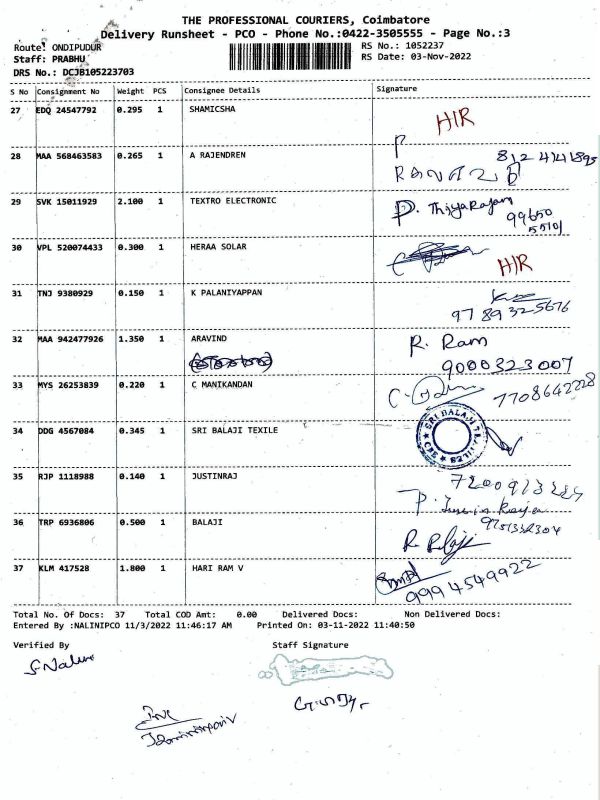 THE PROFESSIONAL COURIERS, Coimbatore
Delivery Runsheet - PCO - Phone No.:0422-3505555 - Page No.:3
Route: ONDIPUDUR RS No.: 1052237
Staff: PRABHU RS Date: 03-Nov-2022
DRS No.: DCJB105223703
S No Consignment No Weight PCS Consignee Details Signature
27 EDQ 24547792 0.295 1 SHAMICSHA
H/R
28 MAA 568463583 0.265 1 A RAJENDREN
29 SVK 15011929 2.100 1 TEXTRO ELECTRONIC
P. Thiyarajan
99650
55101
30 VPL 520074433 0.300 1 HERAA SOLAR
H/R
31 TNJ 9380929 0.150 1 K PALANIYAPPAN
97 89325676
32 MAA 942477926 1.350 1 ARAVIND R. Ram
9000323007
33 MYS 26253839 0.220 1 C MANIKANDAN
7708642228
34 DDG 4567084 0.345 1 SRI BALAJI TEXILE
SRI BALAJI
35 RJP 1118988 0.140 1 JUSTINRAJ
36 TRP 6936806 0.500 1 BALAJI
9751332304
R. Balaji
37 KLM 417528 1.800 1 HARI RAM V
9994549922
Total No. Of Docs: 37 Total COD Amt: 0.00 Delivered Docs: Non Delivered Docs:
Entered By :NALINIPCO 11/3/2022 11:46:17 AM Printed On: 03-11-2022 11:40:50
Verified By Staff Signature